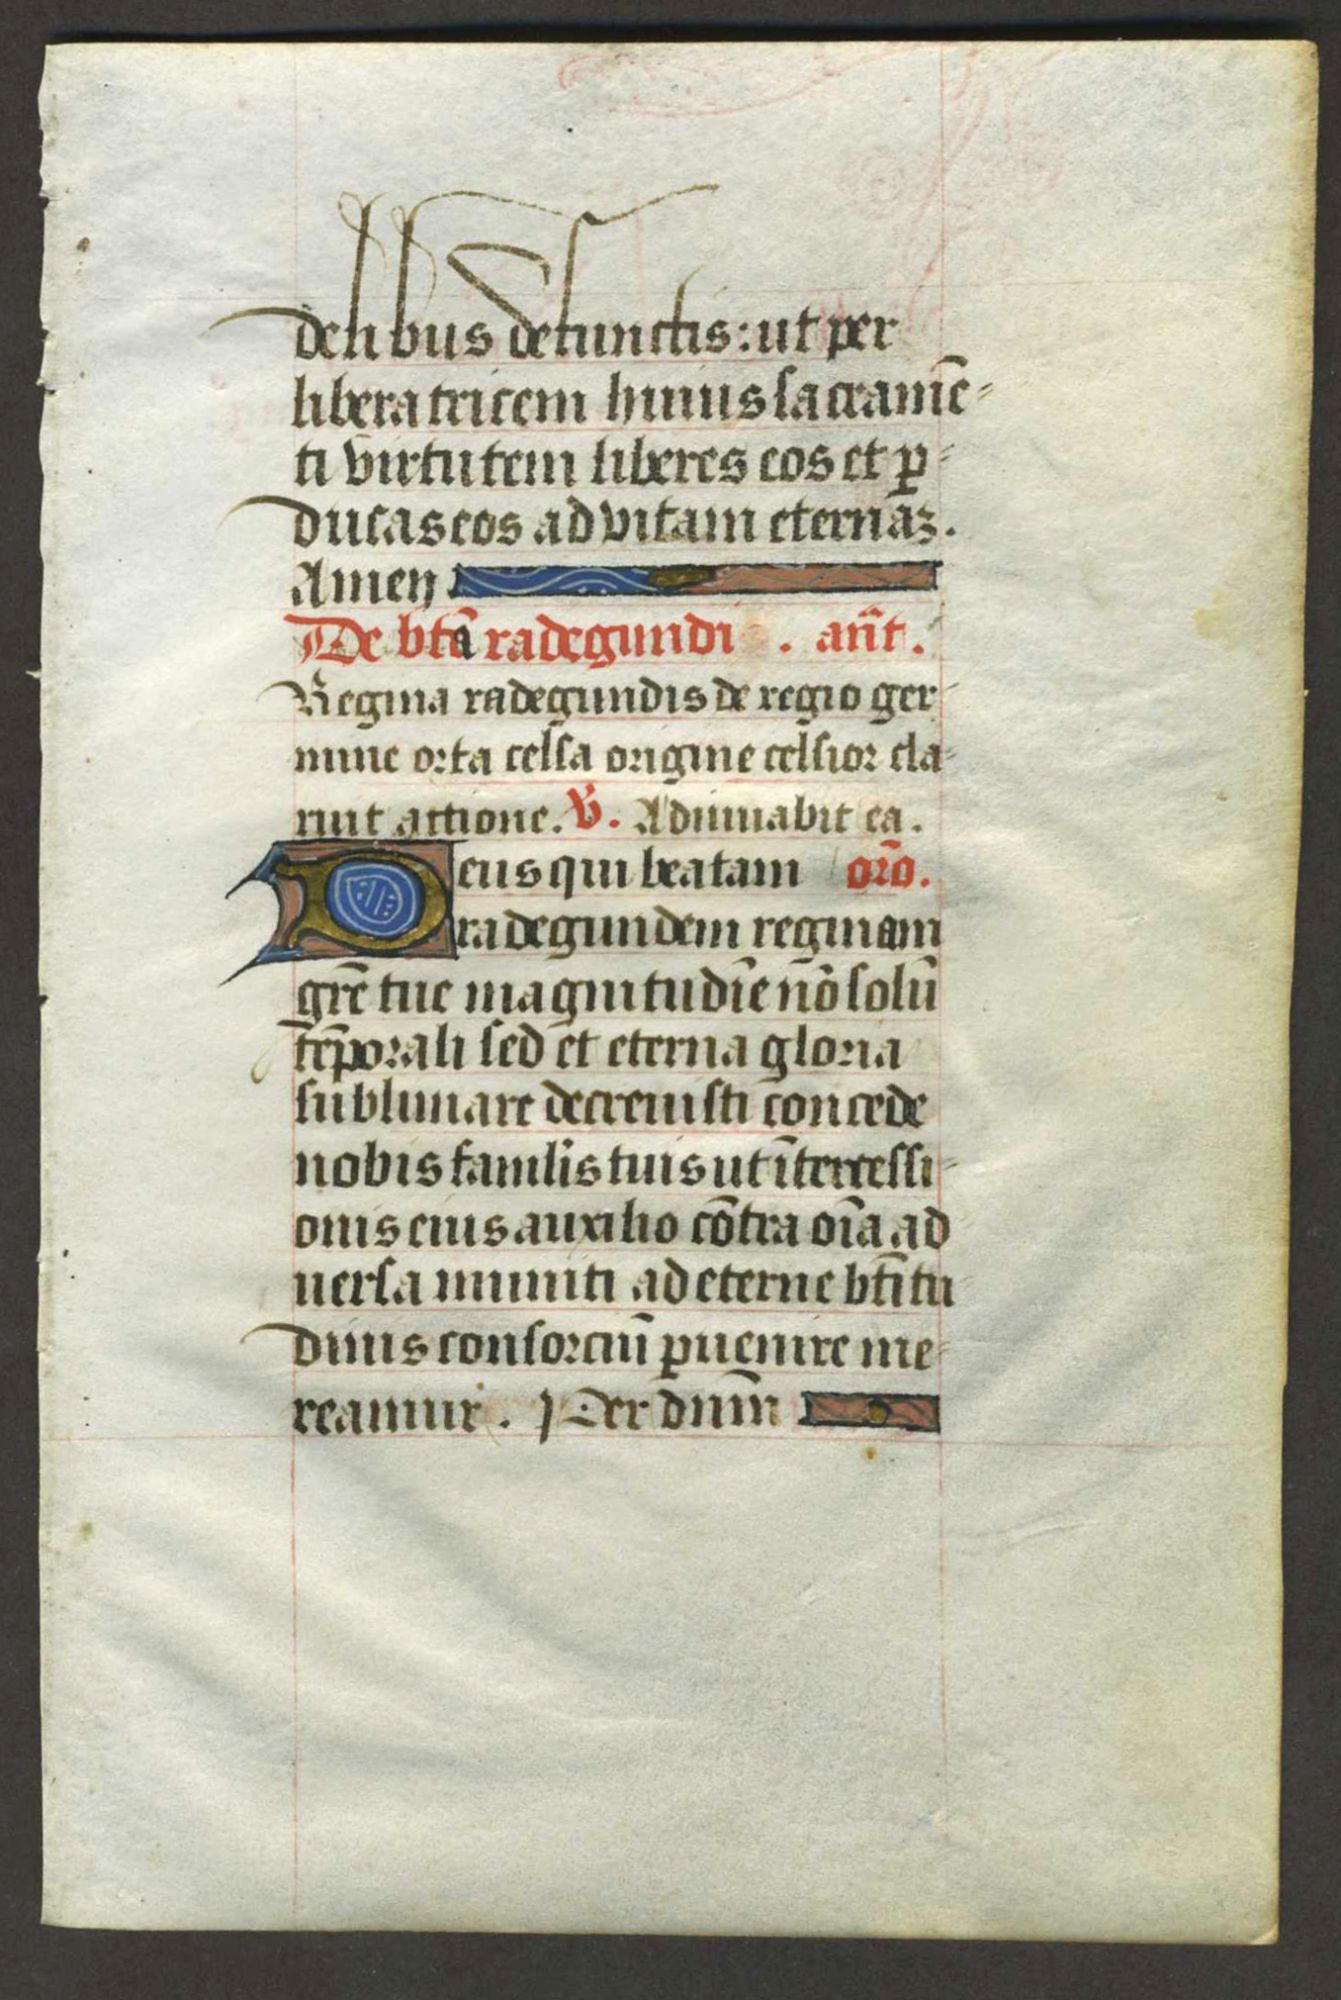 deli bus defunctis: ut per
liberatricem huius sacramē-
ti virtutem liberes eos et ꝑ-
ducas eos ad vitam eternaʒ.
Amen
De btā radegundi . añt.
Regina radegundis de regio ger-
mine orta celsa origine celsior cla-
ruit actione. ℣. Adiuuabit ea.
Deus qui beatam oro̅.
radegundem reginam
grē tue magnitudīe nō solū
tēporali sed et eterna gloria
sublimare decreuisti concede
nobis famul̄is tuis ut ītercessi-
onis eius auxilio cōtra oīa ad
uersa muniti ad eterne bt̄itu
dinis consorciū ꝑuenire me-
reamur. Per dnm̄